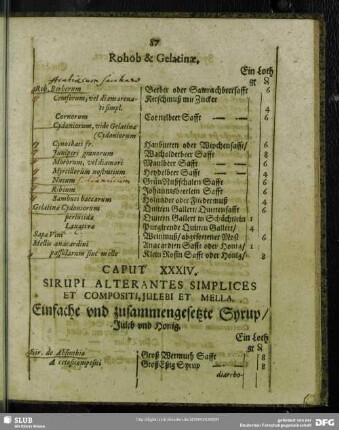 87
Rohob & Gelatinæ.
Ein Loth
gr
Rob. Berberum Berber oder Saurachbeersafft 6
Ceraforum, vel diamarena- Kerschmuß mit Zucker
ti simpl. 4
Cornorum Cornelbeer Safft — — 6
Cydoniorum, vide Gelatina
(Cydoniorum
Cynosbati fr. Hanbutten oder Wiechensafft/ 6
Juniperi granorum Wacholderbeer Safft 8
Mororum, vel diamori Maulbeer Safft — — 6
Myrtillorum nostrorum Heydelbeer Safft — 4
Nucum GrünNußschalen Safft 6
Ribium Johannsbeerlein Safft 6
Sambuci baccarum Holunder oder Fliedermuß 4
Gelatina Cydoniorum Quitten Gallert/ Quittensafft 6
perlucida Quitten Gallert in Schächtelen 1
Laxativa Purgirende Quitten Gallert/ 4
Sapa Vini Weinmuß/ abgesottener Most 6
Mellis anacardini Anacardien Safft oder Honig/ 1
passularum sive melle Klein Rosin Safft oder Honig/ 8
CAPUT XXXIV.
SIRUPI ALTERANTES SIMPLICES
ET COMPOSITI, JULEBI ET MELLA.
Einfache und zusammengesetzte Syrup/
Juleb und Honig.
Ein Loth
gr
Sir. de Absinthio Groß Wermuth Safft 8
Acetosi compositi Groß Essig Syrup — 8
diarrho-
SLUB
Wir führen Wissen.
DFG